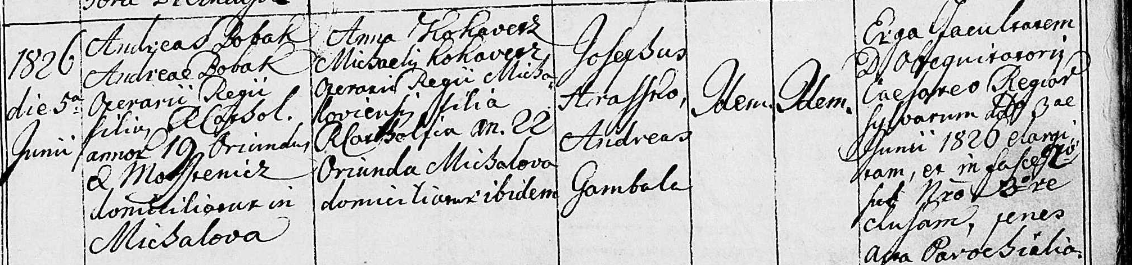 1826
die 5a
Junii
Andreas Bobak
Andreae Bobak
Operarii Regii
filius RCathol.
annor 19 Oriundus
e Mostenicz
domiciliatur in
Michalova
Anna Kokavecz
Michaelis Kokavecz
Operarii Regii Micha-
loviensis filia
RCatholica an. 22
Oriunda Michalova
domiciliatur ibidem
Josephus
Strassko,
Andreas
Gambala
Idem.
Idem.
Erga facultatem
D. Assequitatorii
Caesareo Regior
Sylvarum ddo 3ae
Junii 1826 elargi
tam, et in fasce
sub Nro 2 re
clusam, penes
acta Parochialia.